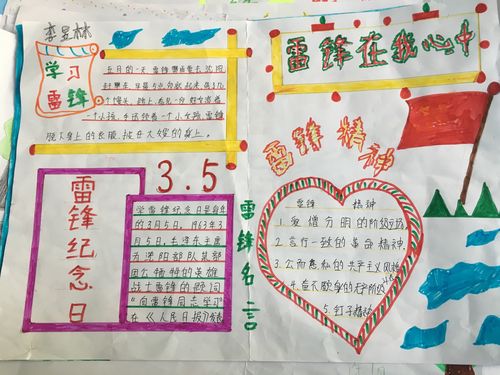 李昱林
学习
雷锋
五月的一天,雷锋冒雨要去沈阳
一个小孩,手还领着一个小女孩,雷锋
脱下身上的衣服,披在大嫂的身上。
雷锋纪念日
3.5
学雷锋纪念日是每年
的3月5日。1963年3
月5日,毛泽东主席
为沈阳部队某部
战士雷锋的题词
“向雷锋同志学习”
在《人民日报》发表
雷锋名言
雷锋在我心中
雷锋精神
雷锋 精神
1.爱憎分明的阶级立场
2.言行一致的革命精神.
3.公而忘私的共产主义风格
4.奋不顾身的无产阶级斗志
5.钉子精神